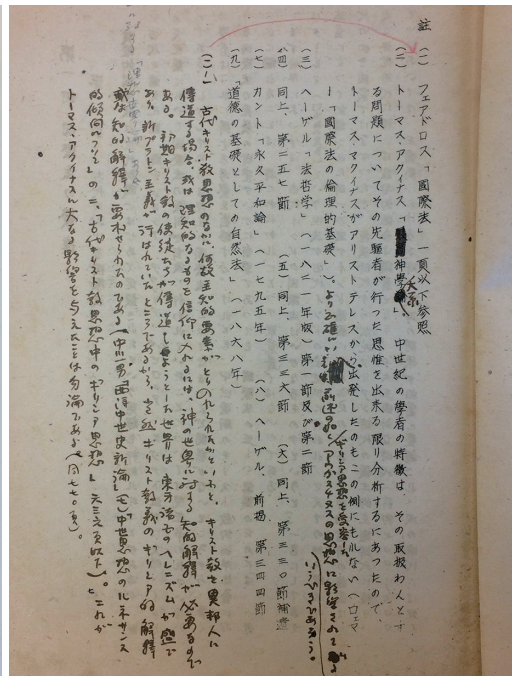 註 (一) フェアドロス「國際法」一頁以下參照
(二) トーマス、アクイナス「神學大系」。 中世紀の學者の特徴は、その取扱わんとす
る問題についてその先驅者が行った思惟を出來る限り分析するにあつたので、
トーマス、マクイナスがアリストテレスから出発したのもこの例にもれない(ウェマ
ー「國際法の倫理的基礎」)。より正確にいえば、前述の如くアウガスチヌスの思想に影響されて
ギリシア思想を受容した
というべきであろう。
(三) ヘーゲル「法哲学」(一八二一年版)第一節及び第二節
(四) 同上、第二五七節 (五) 同上、第三三六節 (六) 同上、第三三〇節補遺
(七) カント「永久平和論」(一七九五年) (八) ヘーゲル、前揭、第三四四節
(九) 「道德の基礎としての自然法」(一八六八年)
(二)ノ一、古代キリスト敎思想のなかに、何故主知的要素がとり入れられたかといわと、キリスト敎を異邦人に
傳道する場合、或は理知的なるものを信仰に入れるには、神の世界に対する知的解釋が必要なので
ある。初期キリスト敎の使徒たちが傳道しようとした世界は東方諸でのヘレニズムが盛で
あり、新プラトン主義が行はれていたところであるから、キリスト敎義のギリシア的解釋
或は知的解釋が要わせられたのである(中川一男、西洋中世史新論(七)「中世思想のルネサンス
的傾向について」の二、「古代キリスト敎思想中のギリシア思想」六三頁以下)と、これが
トーマス、アクイナスに大なる影響を与えたことは勿論である(同七七〇頁)。